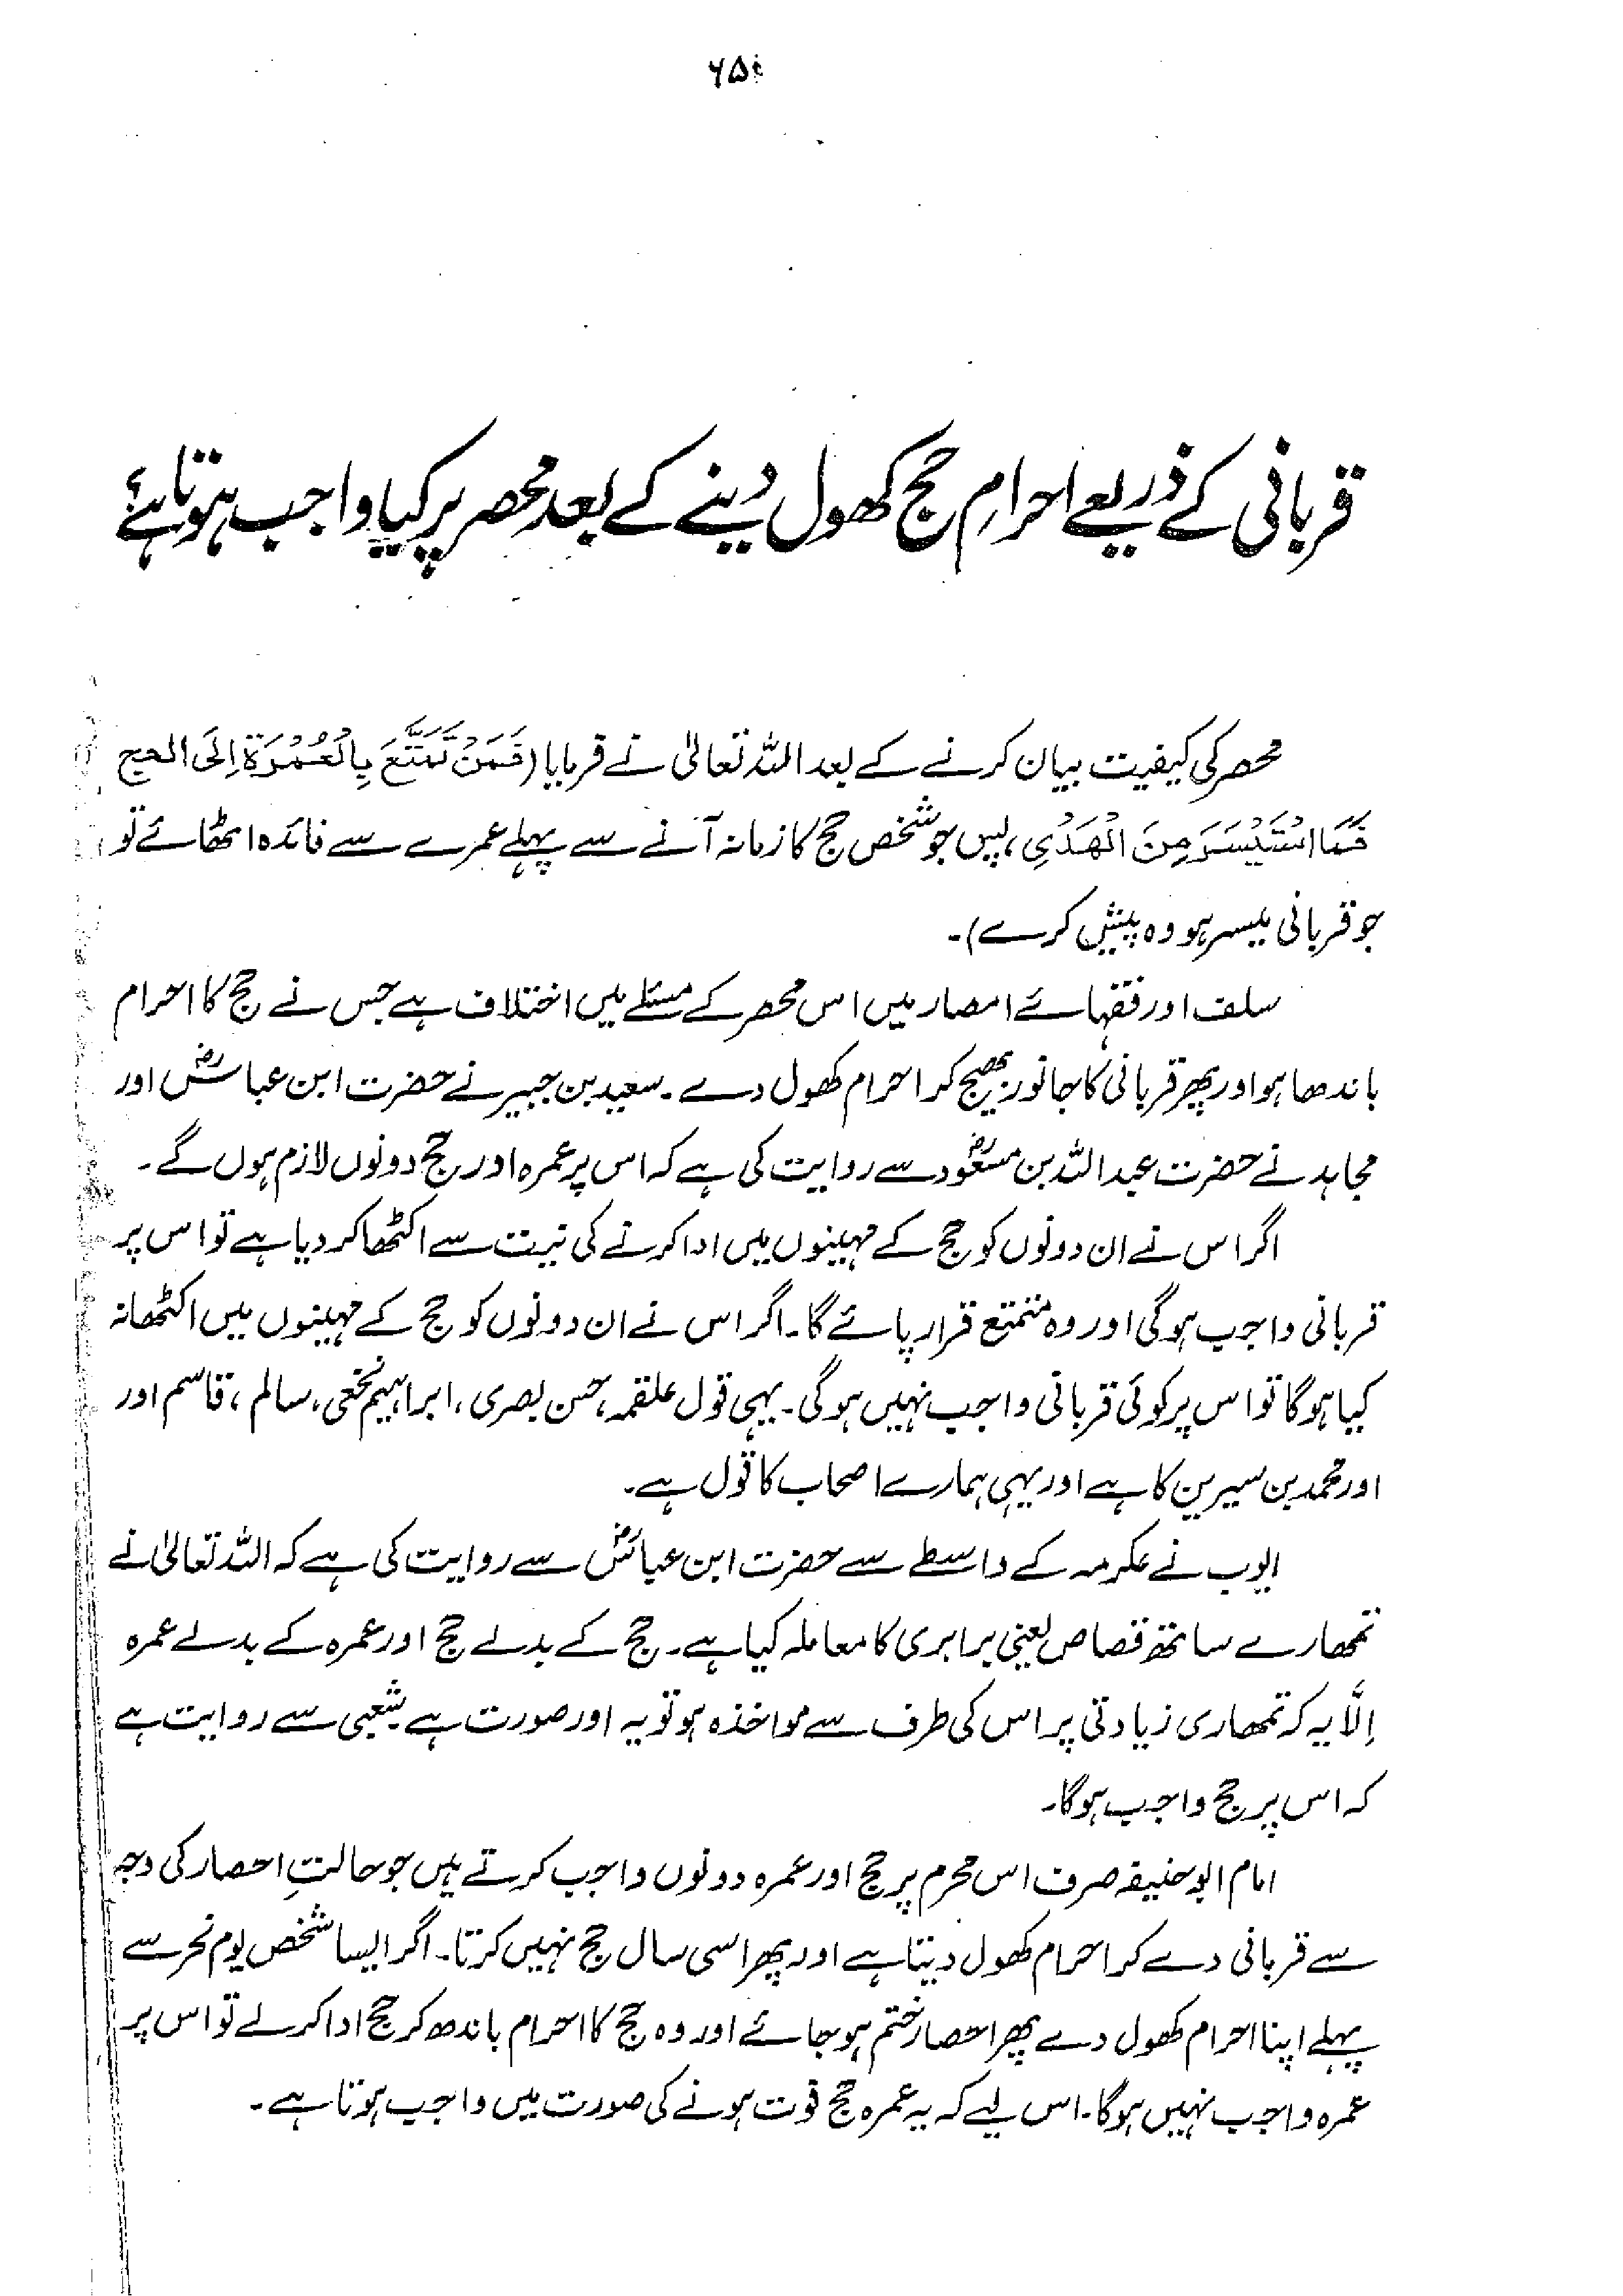 ۶۵۰
قربانی کے ذریعے احرامِ حج کھول دینے کے بعد محصر پر کیا واجب ہوتا ہے؟
محصر کی کیفیت بیان کرنے کے بعد اللہ تعالیٰ نے فرمایا (فَمَنْ تَمَتَّعَ بِالْعُمْرَةِ اِلَى الحج
فَمَا اسْتَيْسَرَ مِنَ الْهَدْىِ، پس جو شخص حج کا زمانہ آنے سے پہلے عمرے سے فائدہ اٹھائے تو
جو قربانی میسر ہو وہ پیش کرے)۔
سلف اور فقہائے امصار میں اس محصر کے مسئلے میں اختلاف ہے جس نے حج کا احرام
باندھا ہو اور پھر قربانی کا جانور بھیج کر احرام کھول دے۔ سعید بن جبیر نے حضرت ابن عباسؓ اور
مجاہد نے حضرت عبد اللہ بن مسعودؓ سے روایت کی ہے کہ اس پر عمرہ اور حج دونوں لازم ہوں گے۔
اگر اس نے ان دونوں کو حج کے مہینوں میں ادا کرنے کی نیت سے اکٹھا کر دیا ہے تو اس پر
قربانی واجب ہوگی اور وہ متمتع قرار پائے گا۔ اگر اس نے ان دونوں کو حج کے مہینوں میں اکٹھا نہ
کیا ہوگا تو اس پر کوئی قربانی واجب نہیں ہوگی۔ یہی قول علقمہ، حسن بصری، ابراہیم نخعی، سالم، قاسم اور
اور محمد بن سیرین کا ہے اور یہی ہمارے اصحاب کا قول ہے۔
ایوب نے عکرمہ کے واسطے سے حضرت ابن عباسؓ سے روایت کی ہے کہ اللہ تعالیٰ نے
تمھارے ساتھ قصاص یعنی برابری کا معاملہ کیا ہے۔ حج کے بدلے حج اور عمرہ کے بدلے عمرہ
اِلَّا یہ کہ تمھاری زیادتی پر اس کی طرف سے مواخذہ ہو تو یہ اور صورت ہے۔ شعبی سے روایت ہے
کہ اس پر حج واجب ہوگا۔
امام ابو حنیفہ صرف اس محرم پر حج اور عمرہ دونوں واجب کرتے ہیں جو حالتِ احصار کی وجہ
سے قربانی دے کر احرام کھول دیتا ہے اور پھر اسی سال حج نہیں کرتا۔ اگر ایسا شخص یوم نحر سے
پہلے اپنا احرام کھول دے پھر احصار ختم ہو جائے اور وہ حج کا احرام باندھ کر حج ادا کرلے تو اس پر
عمرہ واجب نہیں ہوگا۔ اس لیے کہ یہ عمرہ حج فوت ہونے کی صورت میں واجب ہوتا ہے۔